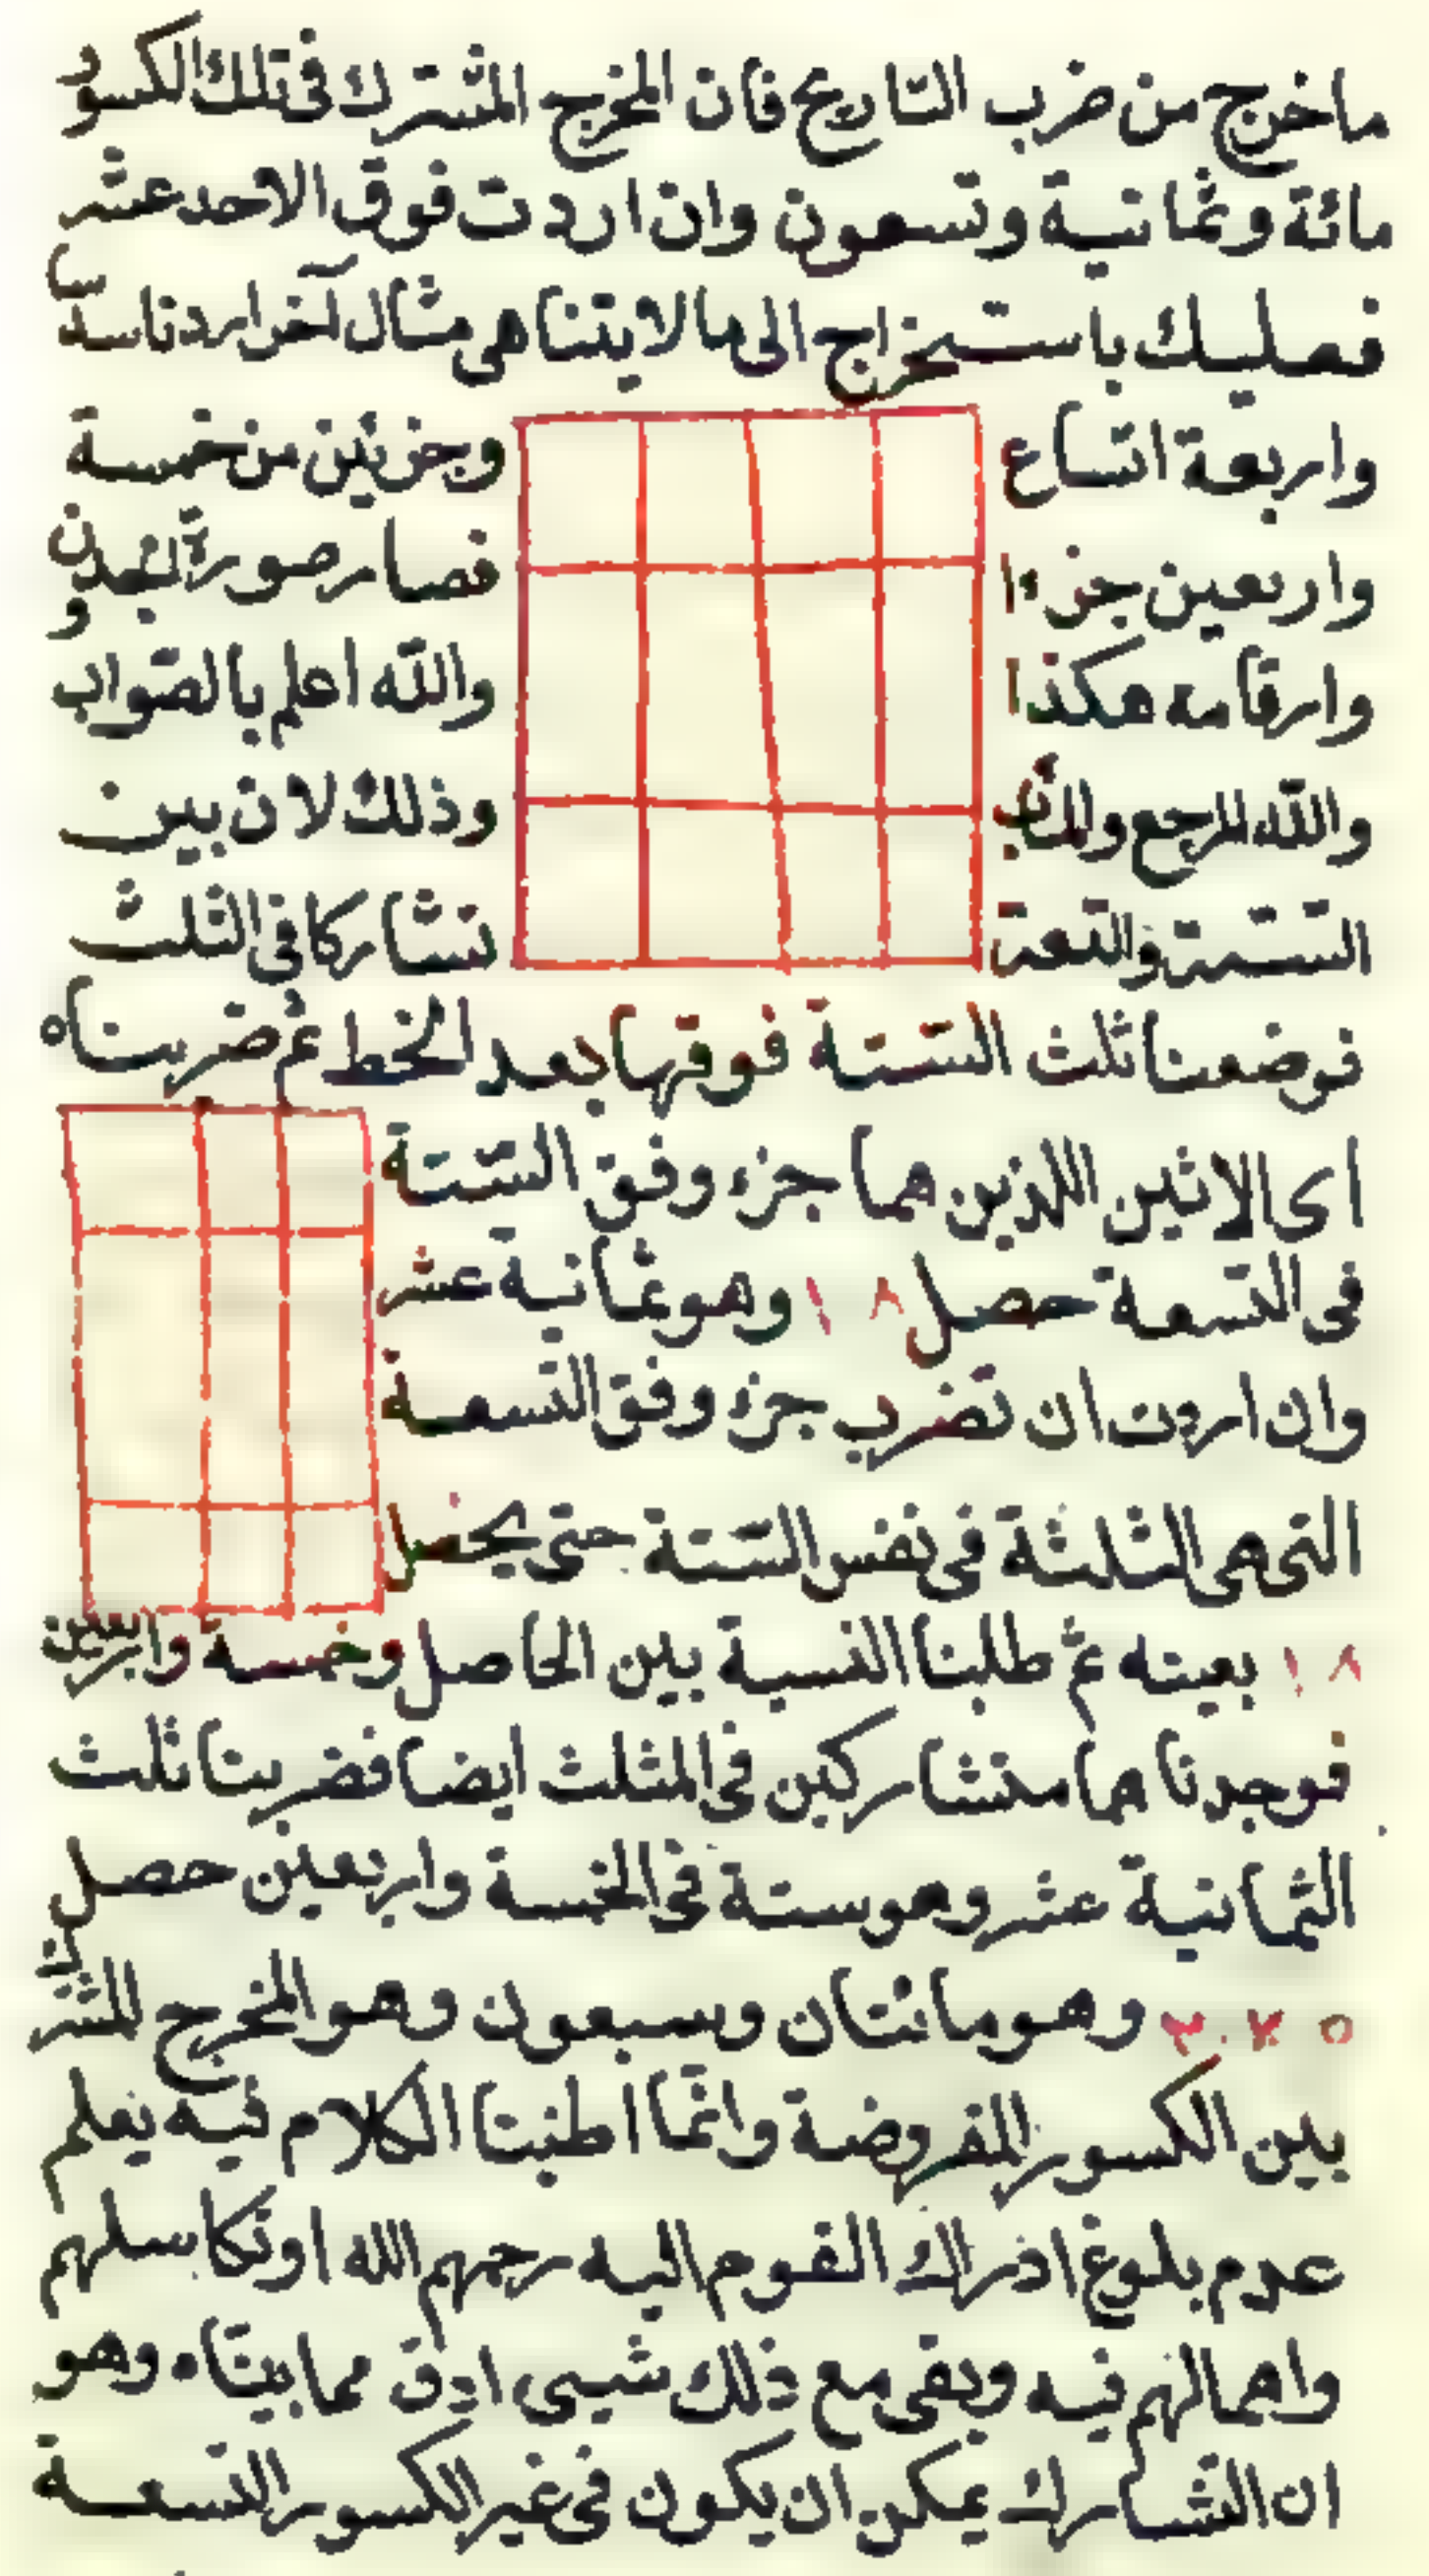 ماخرج من ضرب التاريح فان المخرج المشترك فى تلك الكسور
مائة وثمانية وتسعون وان اردت فوق الاحد عشر
فعليك باستخراج الى ما لا يتناهى مثال آخر اردنا سدسا
واربعة اتساع وجزئين من خمسة
واربعين جزءا فصار صورة
وارقامه هكذا والله اعلم بالصواب
والله المرجع والمآب وذلك لان بين
الستة والتسعة تشاركا فى الثلث
فوضعنا ثلث الستة فوقها بعد الخط ثم ضربناه
اى الاثنين اللذين هما جزء وفق الستة
فى التسعة حصل ١٨ وهو ثمانية عشر
وان اردت ان تضرب جزء وفق التسعة
التى هى الثلثة فى نفس الستة حتى يحصل
١٨ بعينه ثم طلبنا النسبة بين الحاصل وخمسة واربعين
فوجدنا هما متشاركين فى المثلث ايضا فضربنا ثلث
الثمانية عشر وهو ستة فى الخمسة واربعين حصل
٢٧٥ وهو مائتان وسبعون وهو المخرج المشترك
بين الكسور المفروضة وانما اطنبنا الكلام فيه يعلم
عدم بلوغ ادراك القوم اليه رحمهم الله او تكاسلهم
واهمالهم فيه وبقى مع ذلك شيى ادق مما بيناه وهو
ان التشارك يمكن ان يكون فى غير الكسور التسعة